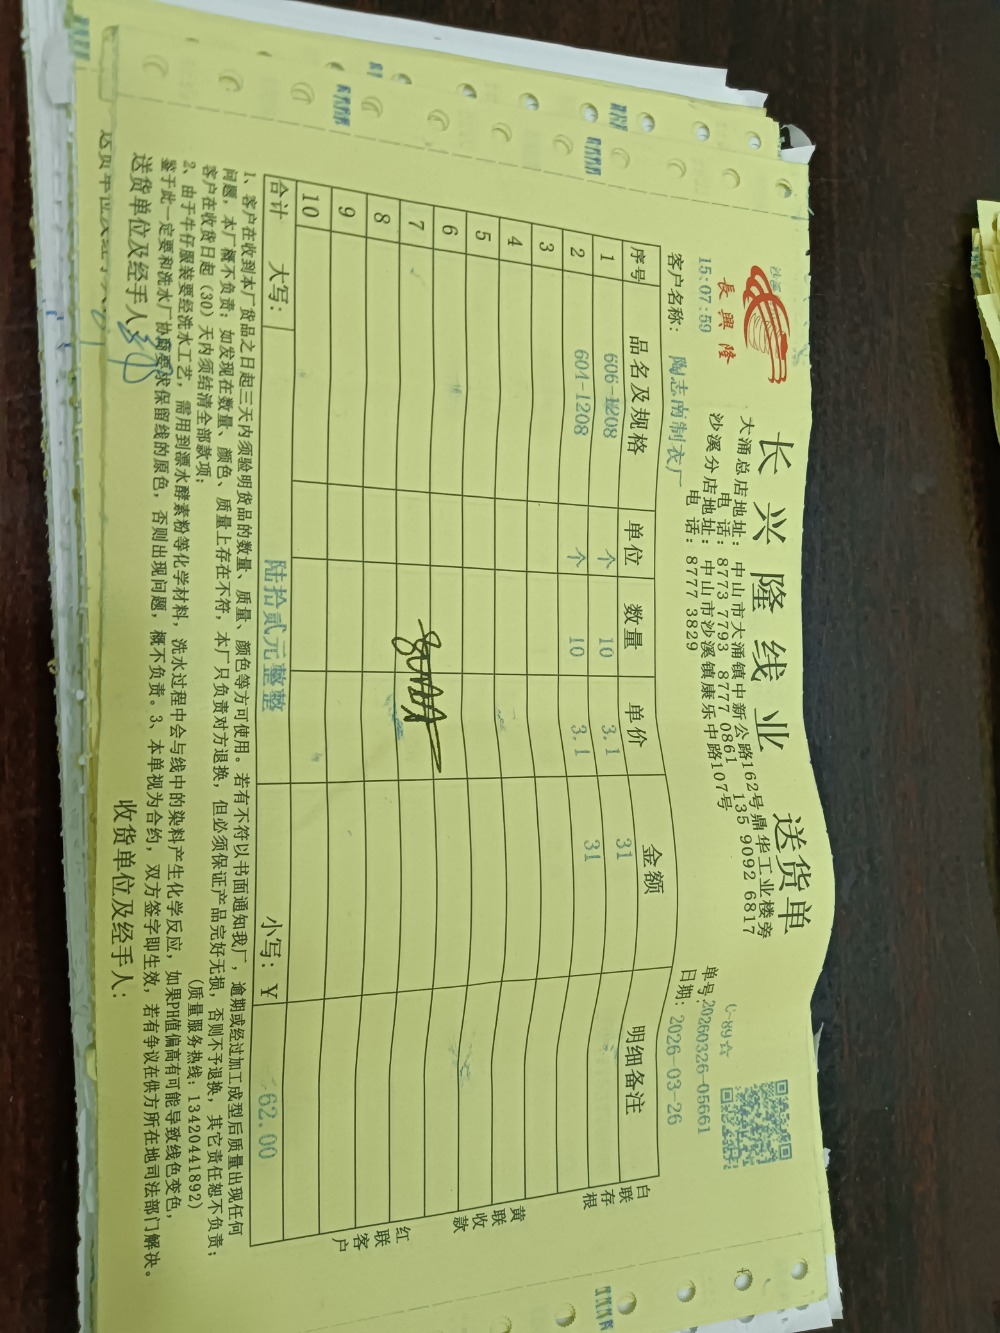 沙溪
長興隆
长兴隆线业 送货单
大涌总店地址：中山市大涌镇中新公路162号鼎华工业楼旁
电话：8773 7793 8777 0861 135 9092 6817
沙溪分店地址：中山市沙溪镇康乐中路107号
电话：8777 3829
15:07:59
单号:20260326-05661
客户名称：陶志南制衣厂
日期：2026-03-26
序号 品名及规格 单位 数量 单价 金额 明细备注
1 606-1208 个 10 3.1 31
2 604-1208 个 10 3.1 31
3
4
5
6
7
8
9
10
合计 大写： 陆拾贰元整整 小写：￥ 62.00
白联存根
黄联收款
红联客户
1、客户在收到本厂货品之日起三天内须验明货品的数量、质量、颜色等方可使用。若有不符以书面通知我厂，逾期或经过加工成型后质量出现任何
问题，本厂概不负责；如发现在数量、颜色、质量上存在不符，本厂只负责对方退换，但必须保证产品完好无损，否则不予退换，其它责任恕不负责；
客户在收货日起（30）天内须结清全部款项； （质量服务热线：13420441892）
2、由于牛仔服装要经洗水工艺，需用到漂水酵素粉等化学材料，洗水过程中会与线中的染料产生化学反应，如果PH值偏高有可能导致线色变色，
鉴于此一定要和洗水厂协商要求保留线的原色，否则出现问题，概不负责。3、本单视为合约，双方签字即生效，若有争议在供方所在地司法部门解决。
送货单位及经手人： 收货单位及经手人：